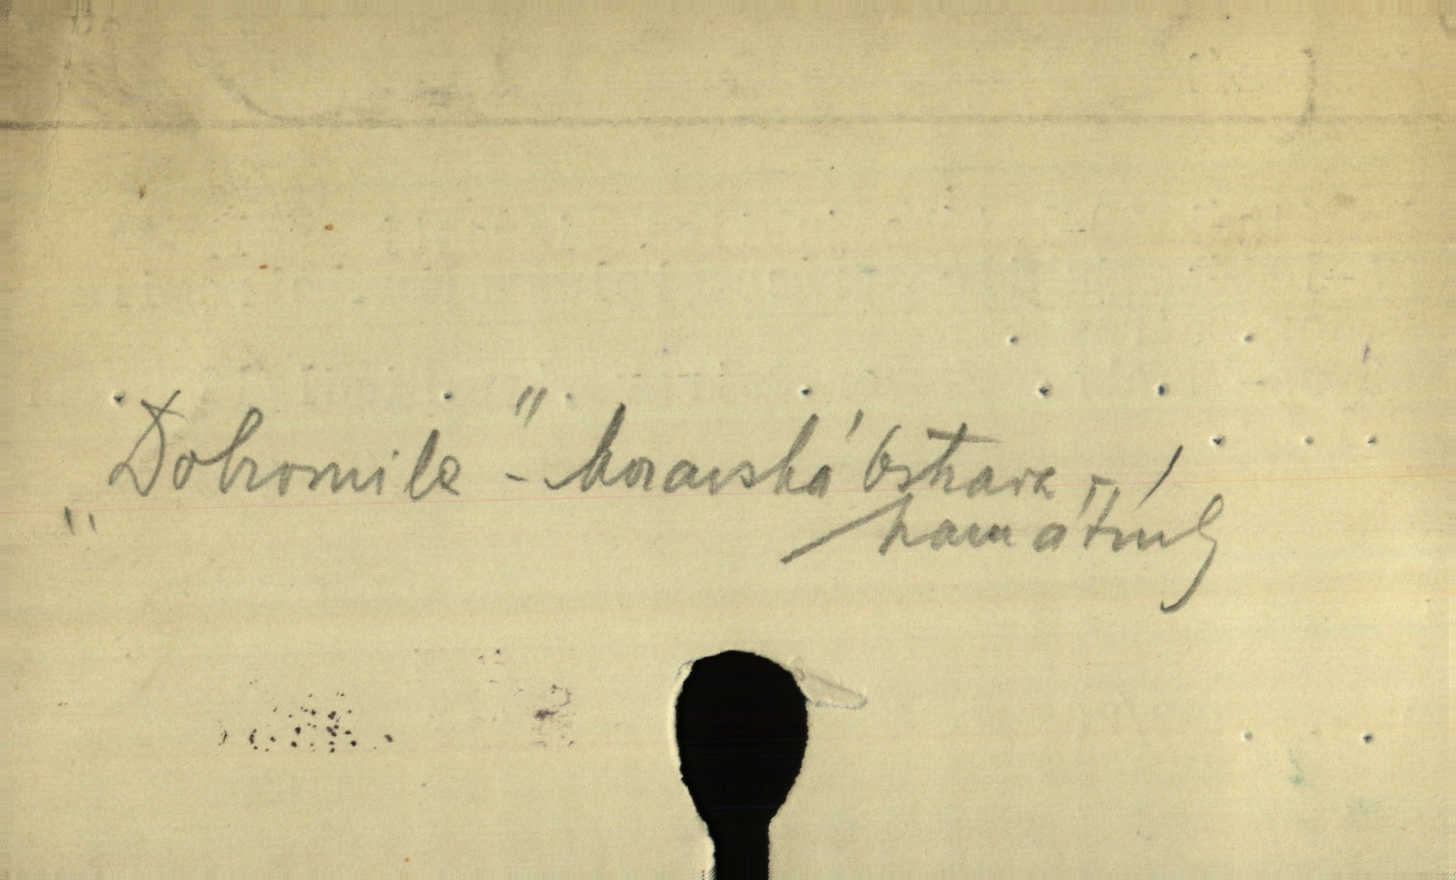 „Dobromila" - Moravská Ostrava -
památník